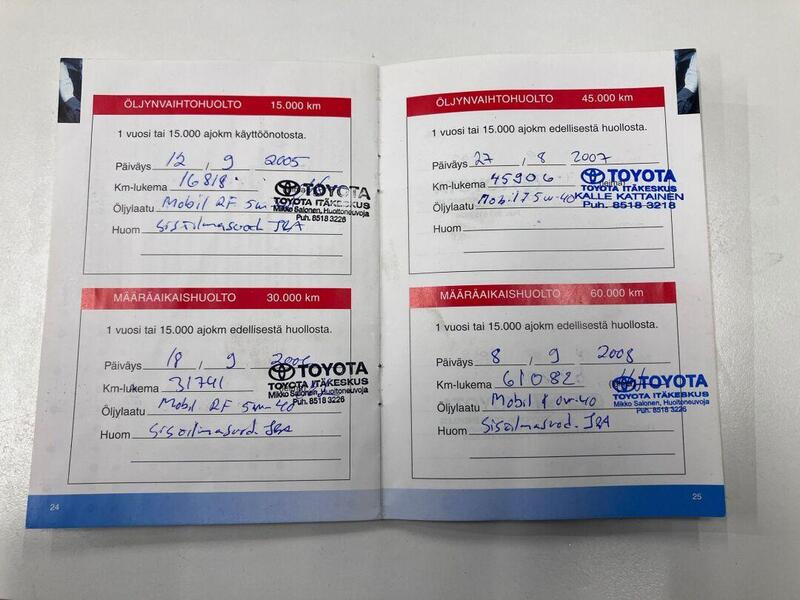 ÖLJYNVAIHTOHUOLTO 15.000 km
1 vuosi tai 15.000 ajokm käyttöönotosta.
Päiväys 12 / 9 2005
Km-lukema 16818
Öljylaatu Mobil RF 5w-40
Huom Sisäilmasuod. JBA
TOYOTA
TOYOTA ITÄKESKUS
Mikko Salonen, Huoltoneuvoja
Puh. 8518 3226
MÄÄRÄAIKAISHUOLTO 30.000 km
1 vuosi tai 15.000 ajokm edellisestä huollosta.
Päiväys 18 / 9
Km-lukema 31741
Öljylaatu Mobil RF 5w-40
Huom Sisäilmasuod. JBA
TOYOTA
TOYOTA ITÄKESKUS
Mikko Salonen, Huoltoneuvoja
Puh. 8518 3226
24
ÖLJYNVAIHTOHUOLTO 45.000 km
1 vuosi tai 15.000 ajokm edellisestä huollosta.
Päiväys 27 / 8 2007
Km-lukema 45906
Öljylaatu Mobil 5w-40
Huom
TOYOTA
TOYOTA ITÄKESKUS
KALLE KATTAINEN
Puh. 8518 3218
MÄÄRÄAIKAISHUOLTO 60.000 km
1 vuosi tai 15.000 ajokm edellisestä huollosta.
Päiväys 8 / 9 2008
Km-lukema 61082
Öljylaatu Mobil 1 0w-40
Huom Sisäilmasuod. JBA
TOYOTA
TOYOTA ITÄKESKUS
Mikko Salonen, Huoltoneuvoja
Puh. 8518 3226
25